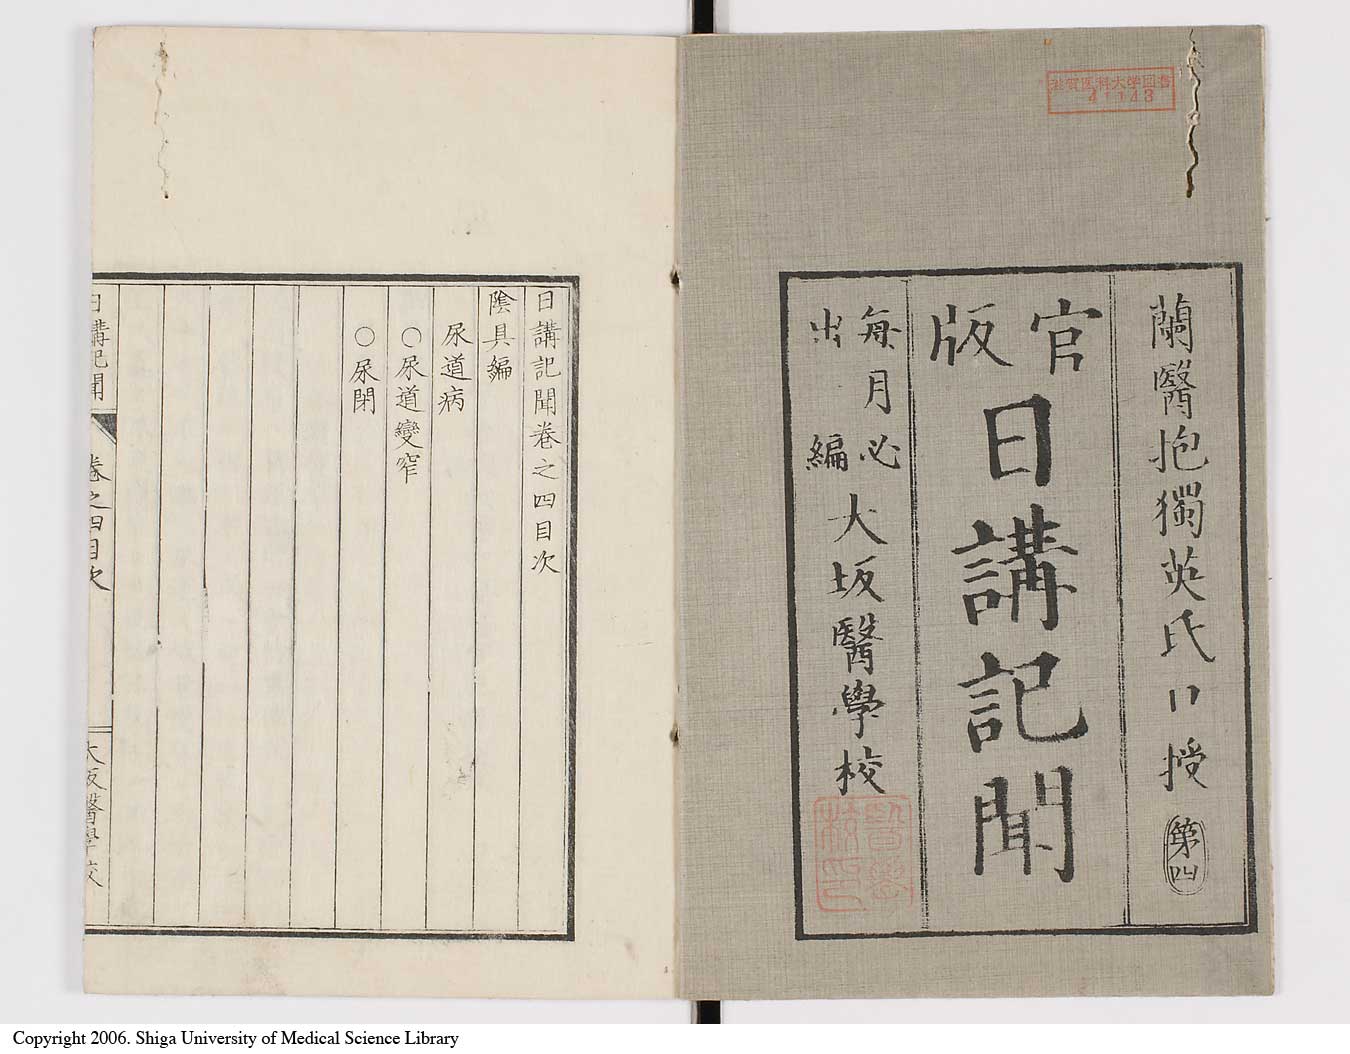 滋賀医科大学図書
41143
蘭醫抱獨英氏口授
第四
官版
日講記聞
每月必出編
大坂醫學校
日講記聞卷之四目次
陰具編
尿道病
○尿道變窄
○尿閉
日講記聞
卷之四目次
大坂醫學校
Copyright 2006. Shiga University of Medical Science Library